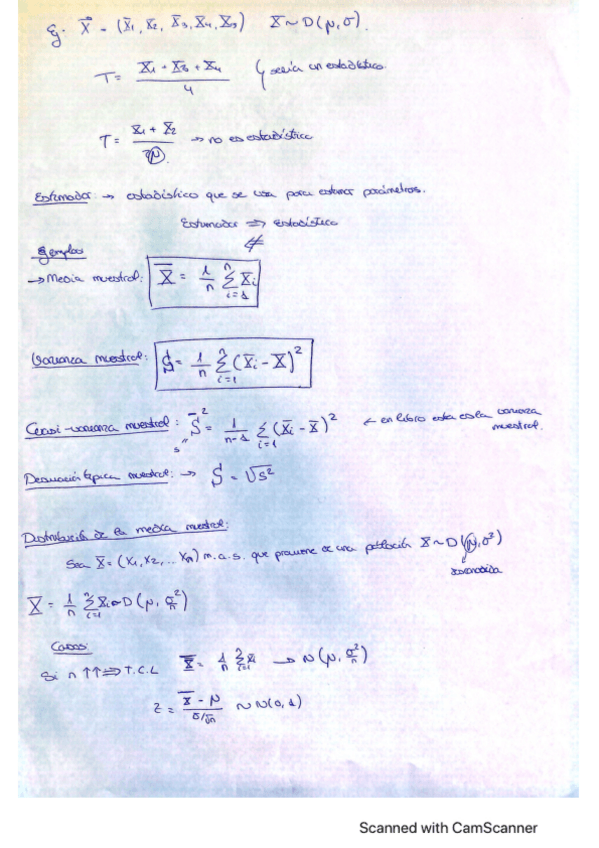 Ej. X⃗ = (X₁, X₂, X₃, X₄, X₅) X ~ D(μ, σ).
T = (X₁ + X₃ + X₄)/4 sería un estadístico.
T = (X₁ + X₂)/2μ → no es estadístico
Estimador: → estadístico que se usa para estimar parámetros.
Estimador ⇒ estadístico
⇍
Ejemplos
→ Media muestral: X̄ = 1/n Σⁿᵢ₌₁ Xᵢ
Varianza muestral: S² = 1/n Σⁿᵢ₌₁ (Xᵢ - X̄)²
Cuasi-varianza muestral: S̄² = 1/(n-1) Σᵢ₌₁ (Xᵢ - X̄)² ← en libro esta es la varianza
muestral.
Desviación típica muestral: → S = √S²
Distribución de la media muestral:
Sea X̄ = (X₁, X₂, ... Xₙ) m.a.s. que proviene de una población X ~ D(μ, σ²)
X̄ = 1/n Σⁿᵢ₌₁ Xᵢ ~ D(μ, σ²/n)
Casos:
Si n ↑↑ ⇒ T.C.L X̄ = 1/n Σⁿᵢ₌₁ Xᵢ → N(μ, σ²/n)
Z = (X̄ - μ)/(σ/√n) ~ N(0, 1)
Scanned with CamScanner